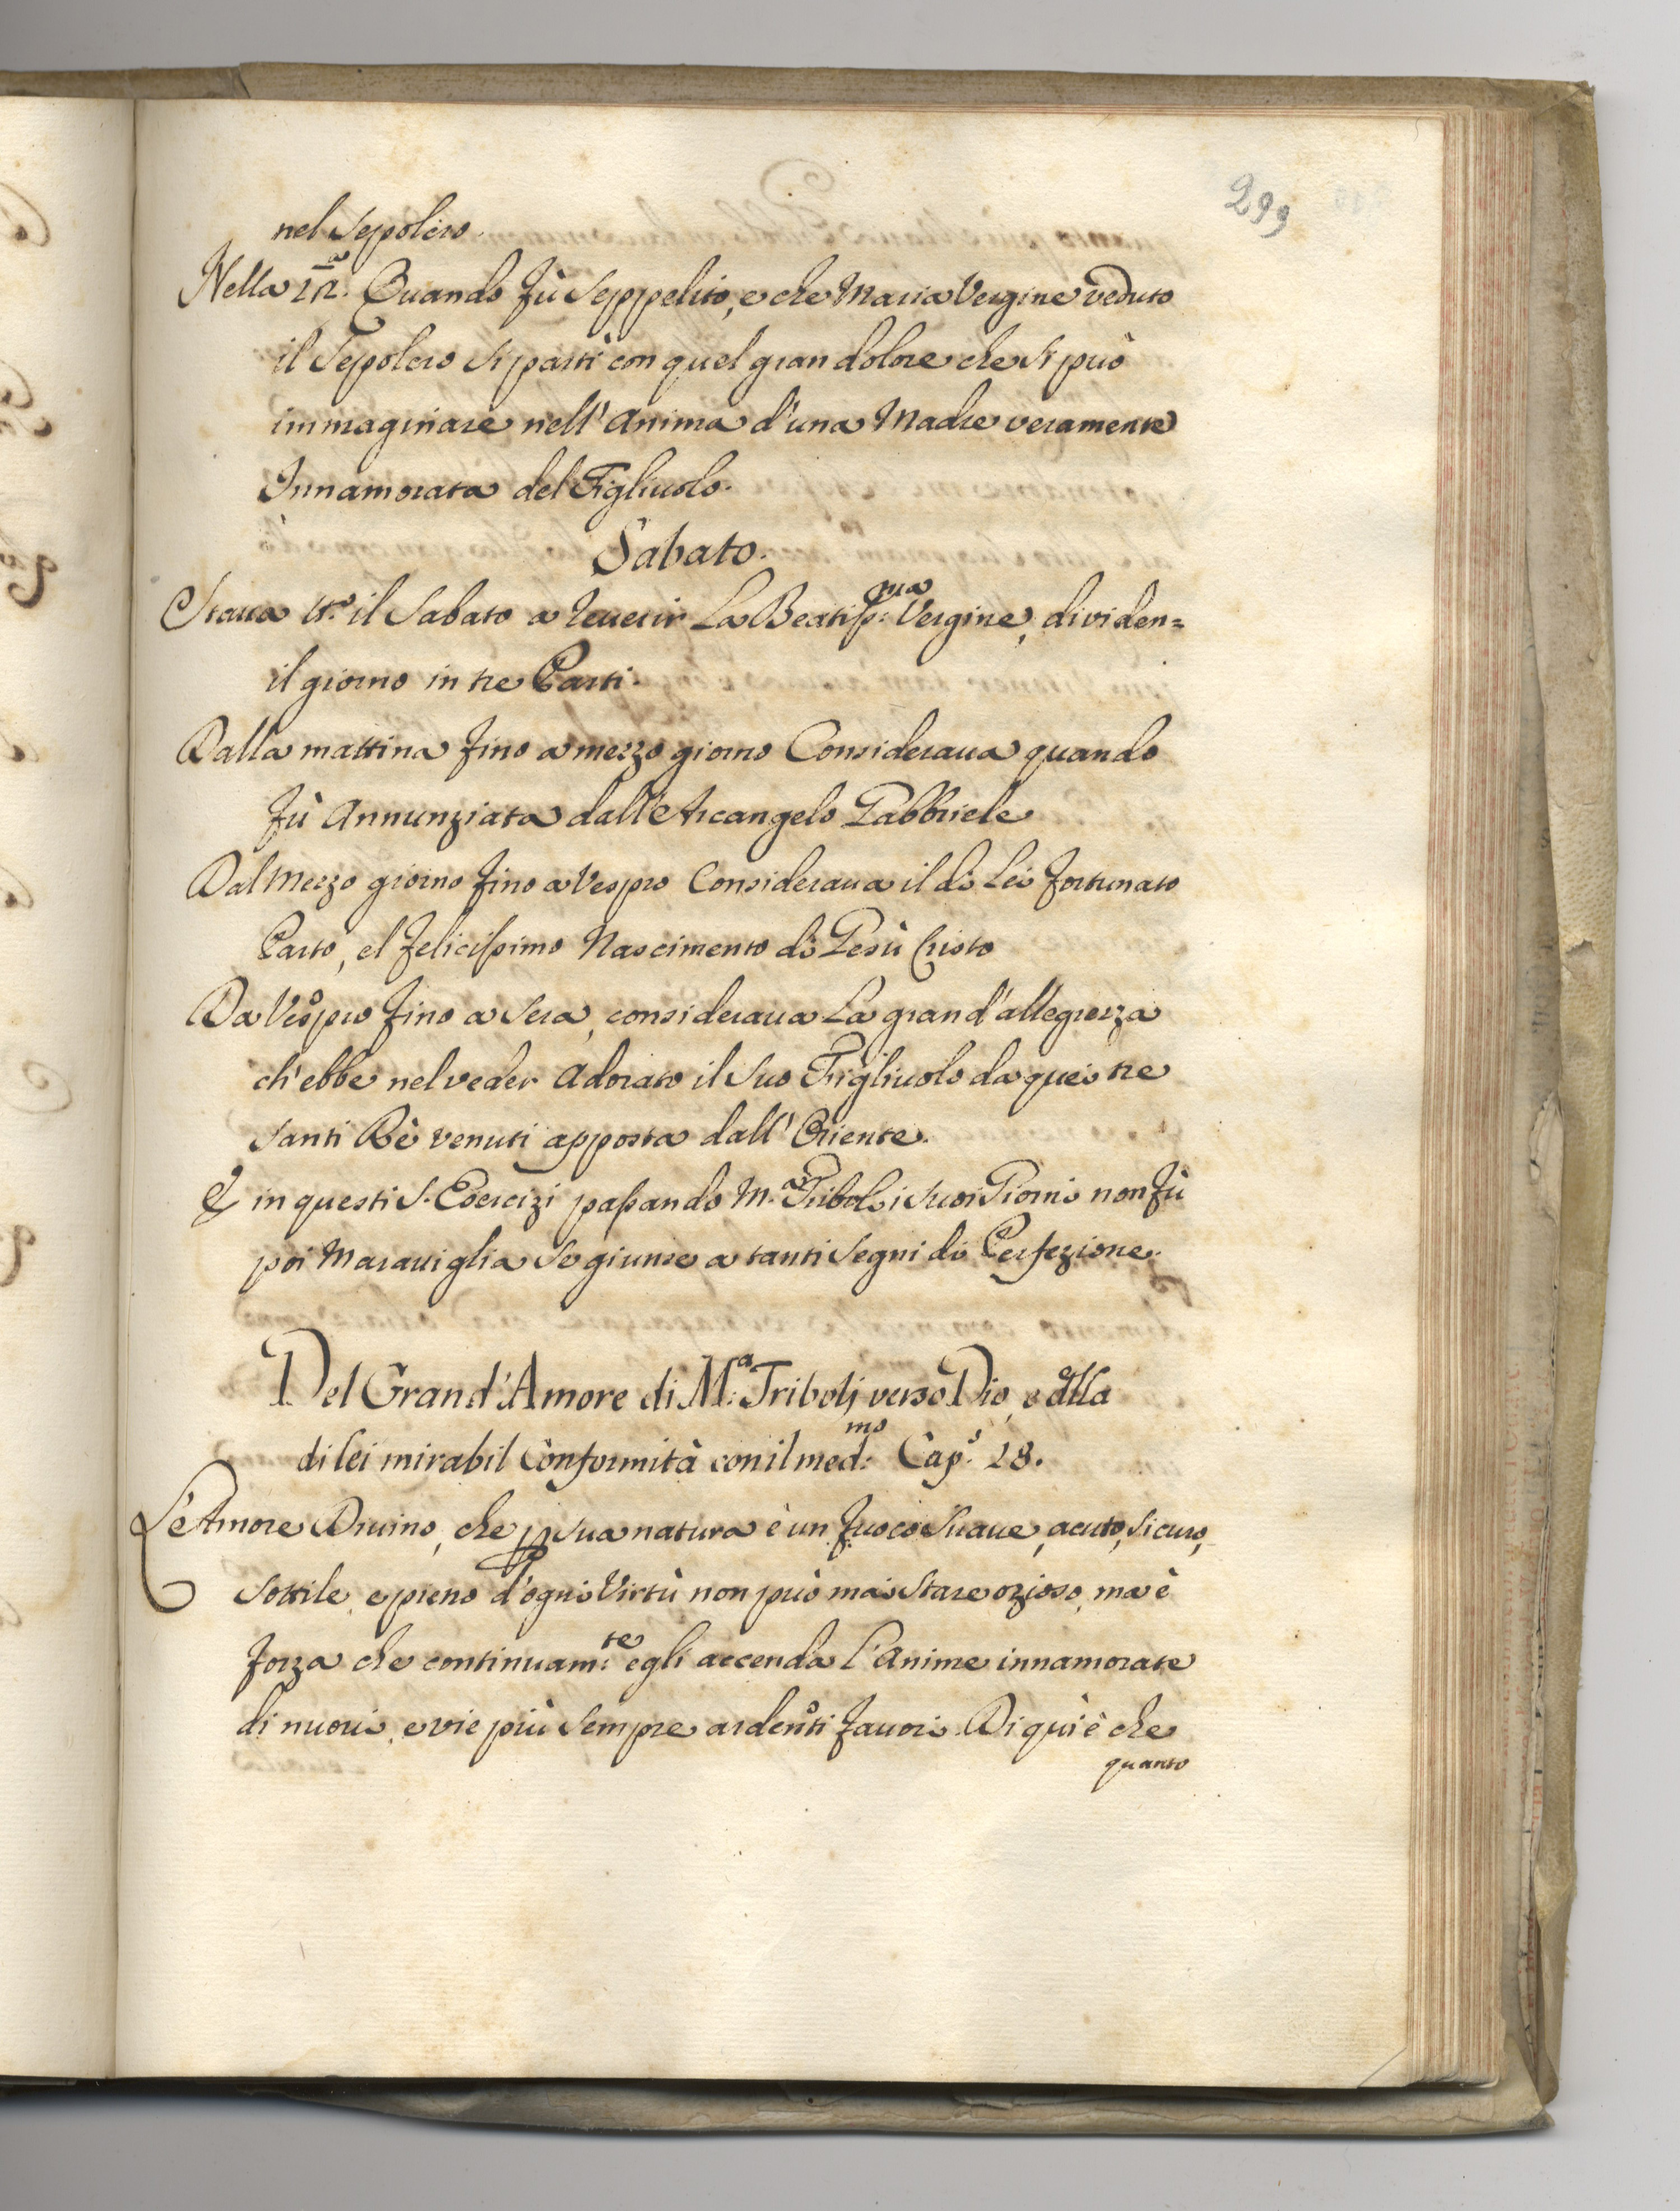 299
nel Sepolcro.
Nella 12.ª Quando fù Seppelito, e che Maria Vergine veduto
il Sepolcro si partì con quel gran dolore che si può
immaginare nell' Anima d'una Madre veramente
Innamorata del Figliuolo.
Sabato.
Staua il Sabato a reuerir La Beatiss:ma Vergine, diuiden=
il giorno in tre Parti.
Dalla mattina fino a mezzo giorno Consideraua quando
fù Annunziata dall'Arcangelo Gabbriele
Dal Mezzo giorno fino a Vespro Consideraua il di Lei fortunato
Parto, el felicissimo Nascimento di Gesù Cristo
Da Vespro fino a sera, consideraua La grand'allegrezza
ch'ebbe nel veder Adorato il Suo Figliuolo da quei tre
Santi Rè venuti apposta dall' Oriente.
E in questi S. Esercizi passando M.ª Triboli i suoi Giorni non fù
poi Marauiglia se giunse a tanti Segni di Perfezione.
Del Grand'Amore di M:ª Triboli verso Dio, e della
di lei mirabil Conformità con il med:mo Cap.º 28.
L'Amore Diuino, che p sua natura è un fuoco Suaue, acuto, sicuro,
Sottile, e pieno d'ogni Virtù non può mai Stare ozioso, ma è
forza che continuam:te egli accenda l'Anime innamorate
di nuoui, e vie più sempre ardenti fauori. Di qui è che
quanto